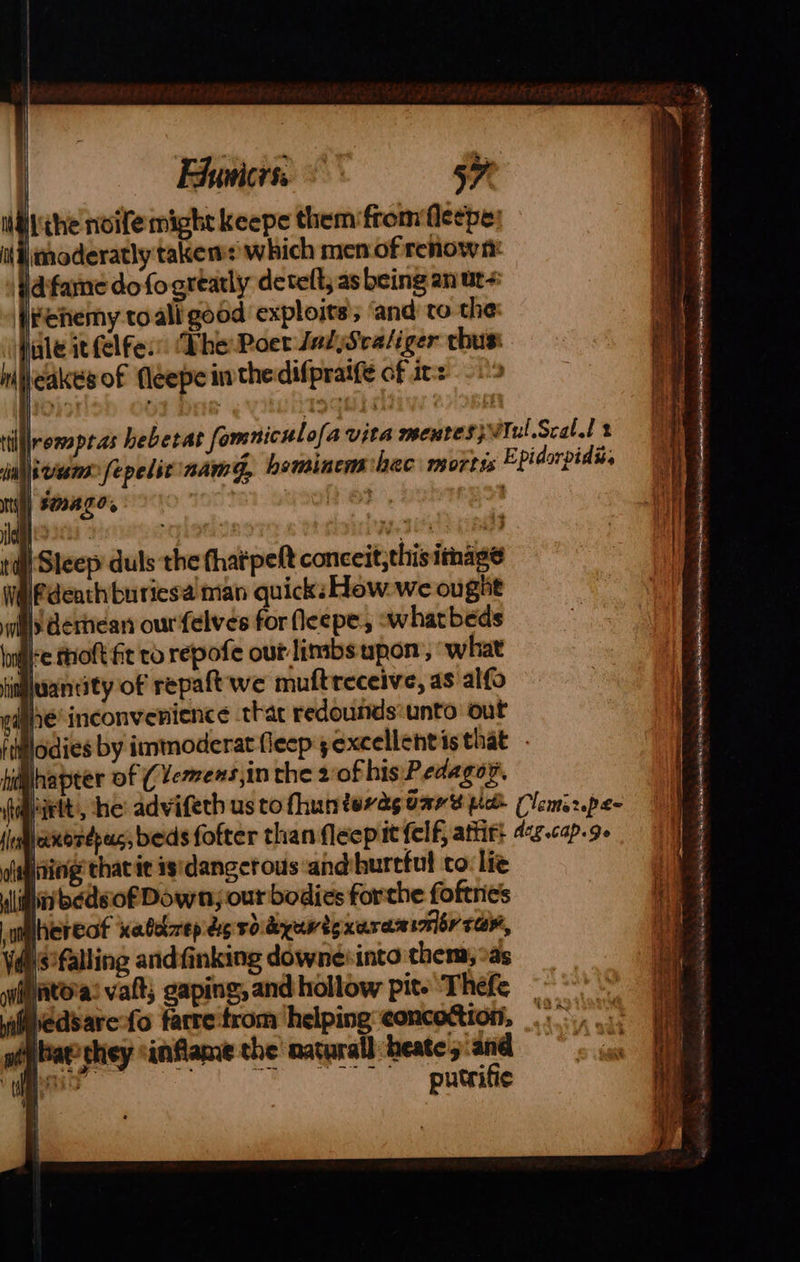 Humors. 57
the noiſe might keepe them from ſleepe;
moderatly taken: which men of renown
fame do ſo greatly deteſt, as being an ut-
enemy to all good exploits, and to the
it ſelfe. The Poet Iul. Scaliger thus
ſpeakes of ſleepe in the diſpraiſe of it:
romptas hebetat ſomniculoſa vita mentes; Iul.Scal.l 1
vivum ſepelit namq, hominem hac mortis Epidorpidũs
imago.
Sleep duls the ſharpeſt conceit, this image
death buries a man quick. How we ought
demean our ſelves for ſleepe, what beds
moſt fit to repoſe our limbs upon, what
quantity of repaſt we muſt receive, as alſo
inconvenience that redounds unto our
bodies by immoderat ſleep; excellent is that
chapter of Clemens, in the 2 of his Pedagog.
he adviſeth us to ſhun Clem. 2. pæ-
beds ſofter than ſleep it ſelf, affir- dag. cap. 9.
ming that it is dangerous and hurtful to lie
in beds of Down, our bodies for the ſoftnes
thereof
falling and ſinking downe into them, as
into a vaſt, gaping, and hollow pit. Theſe
beds are ſo farre from helping concoction,
that they inflame the naturall heate, and
putrifie